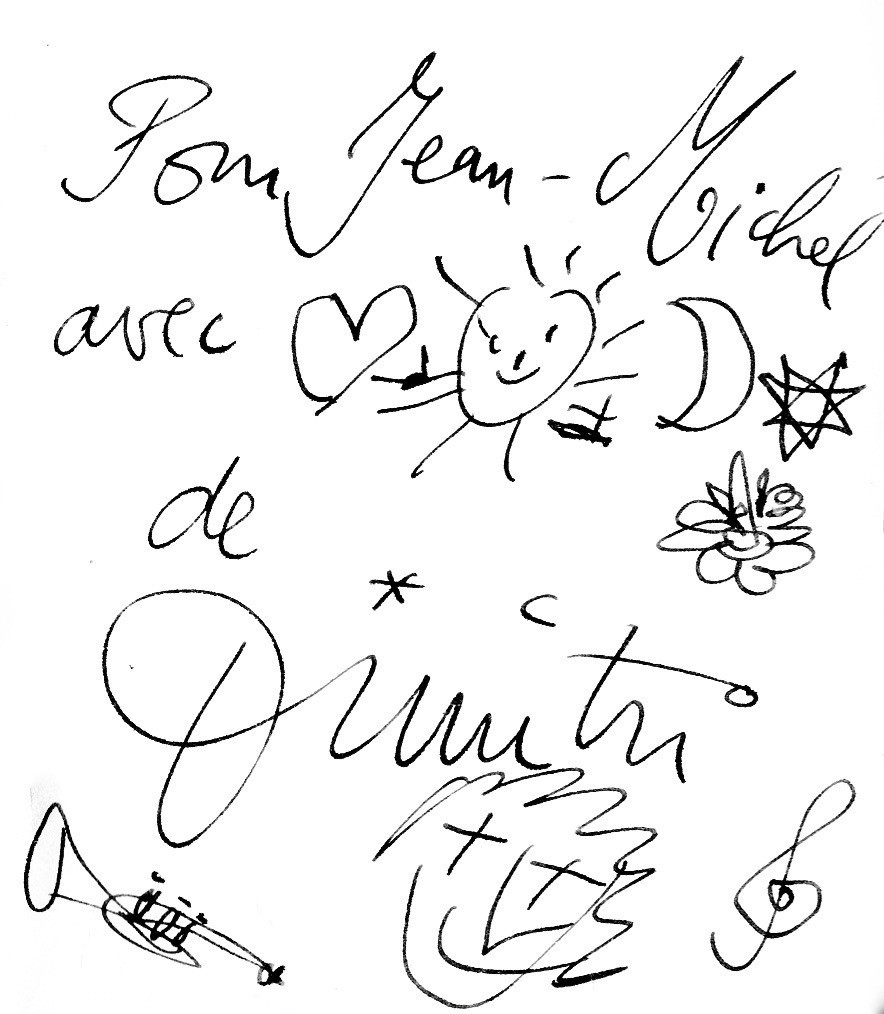 Pour Jean-Michel
avec
de
Dimitri